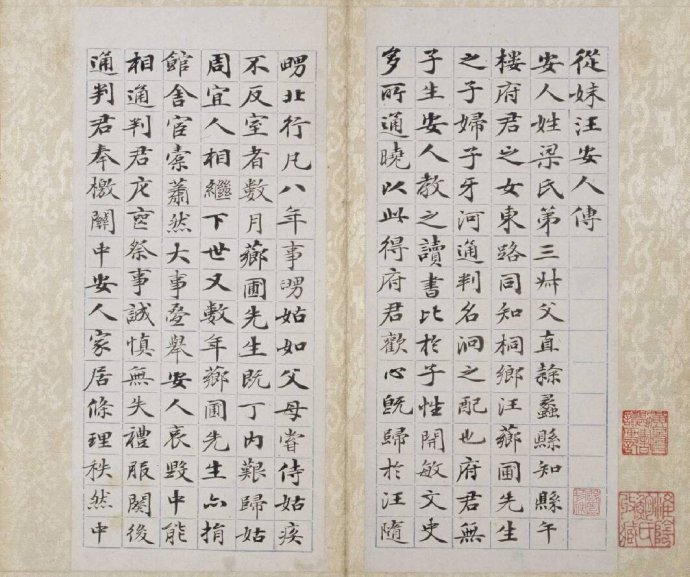 從妹汪安人傳
安人姓梁氏第三叔父直隸蠡縣知縣午
楼府君之女東路同知桐鄉汪薌圃先生
之子婦子牙河通判名泂之配也府君無
子生安人教之讀書比於子性開敏文史
多所通曉以此得府君歡心既歸於汪隨
舅北行凡八年事舅姑如父母嘗侍姑疾
不反室者數月薌圃先生既丁内艱歸姑
周宜人相繼下世又數年薌圃先生亦捐
館舍宦橐蕭然大事疊舉安人哀毀中能
相通判君庀喪祭事誠慎無失禮服闋後
通判君奉檄關中安人家居條理秩然中